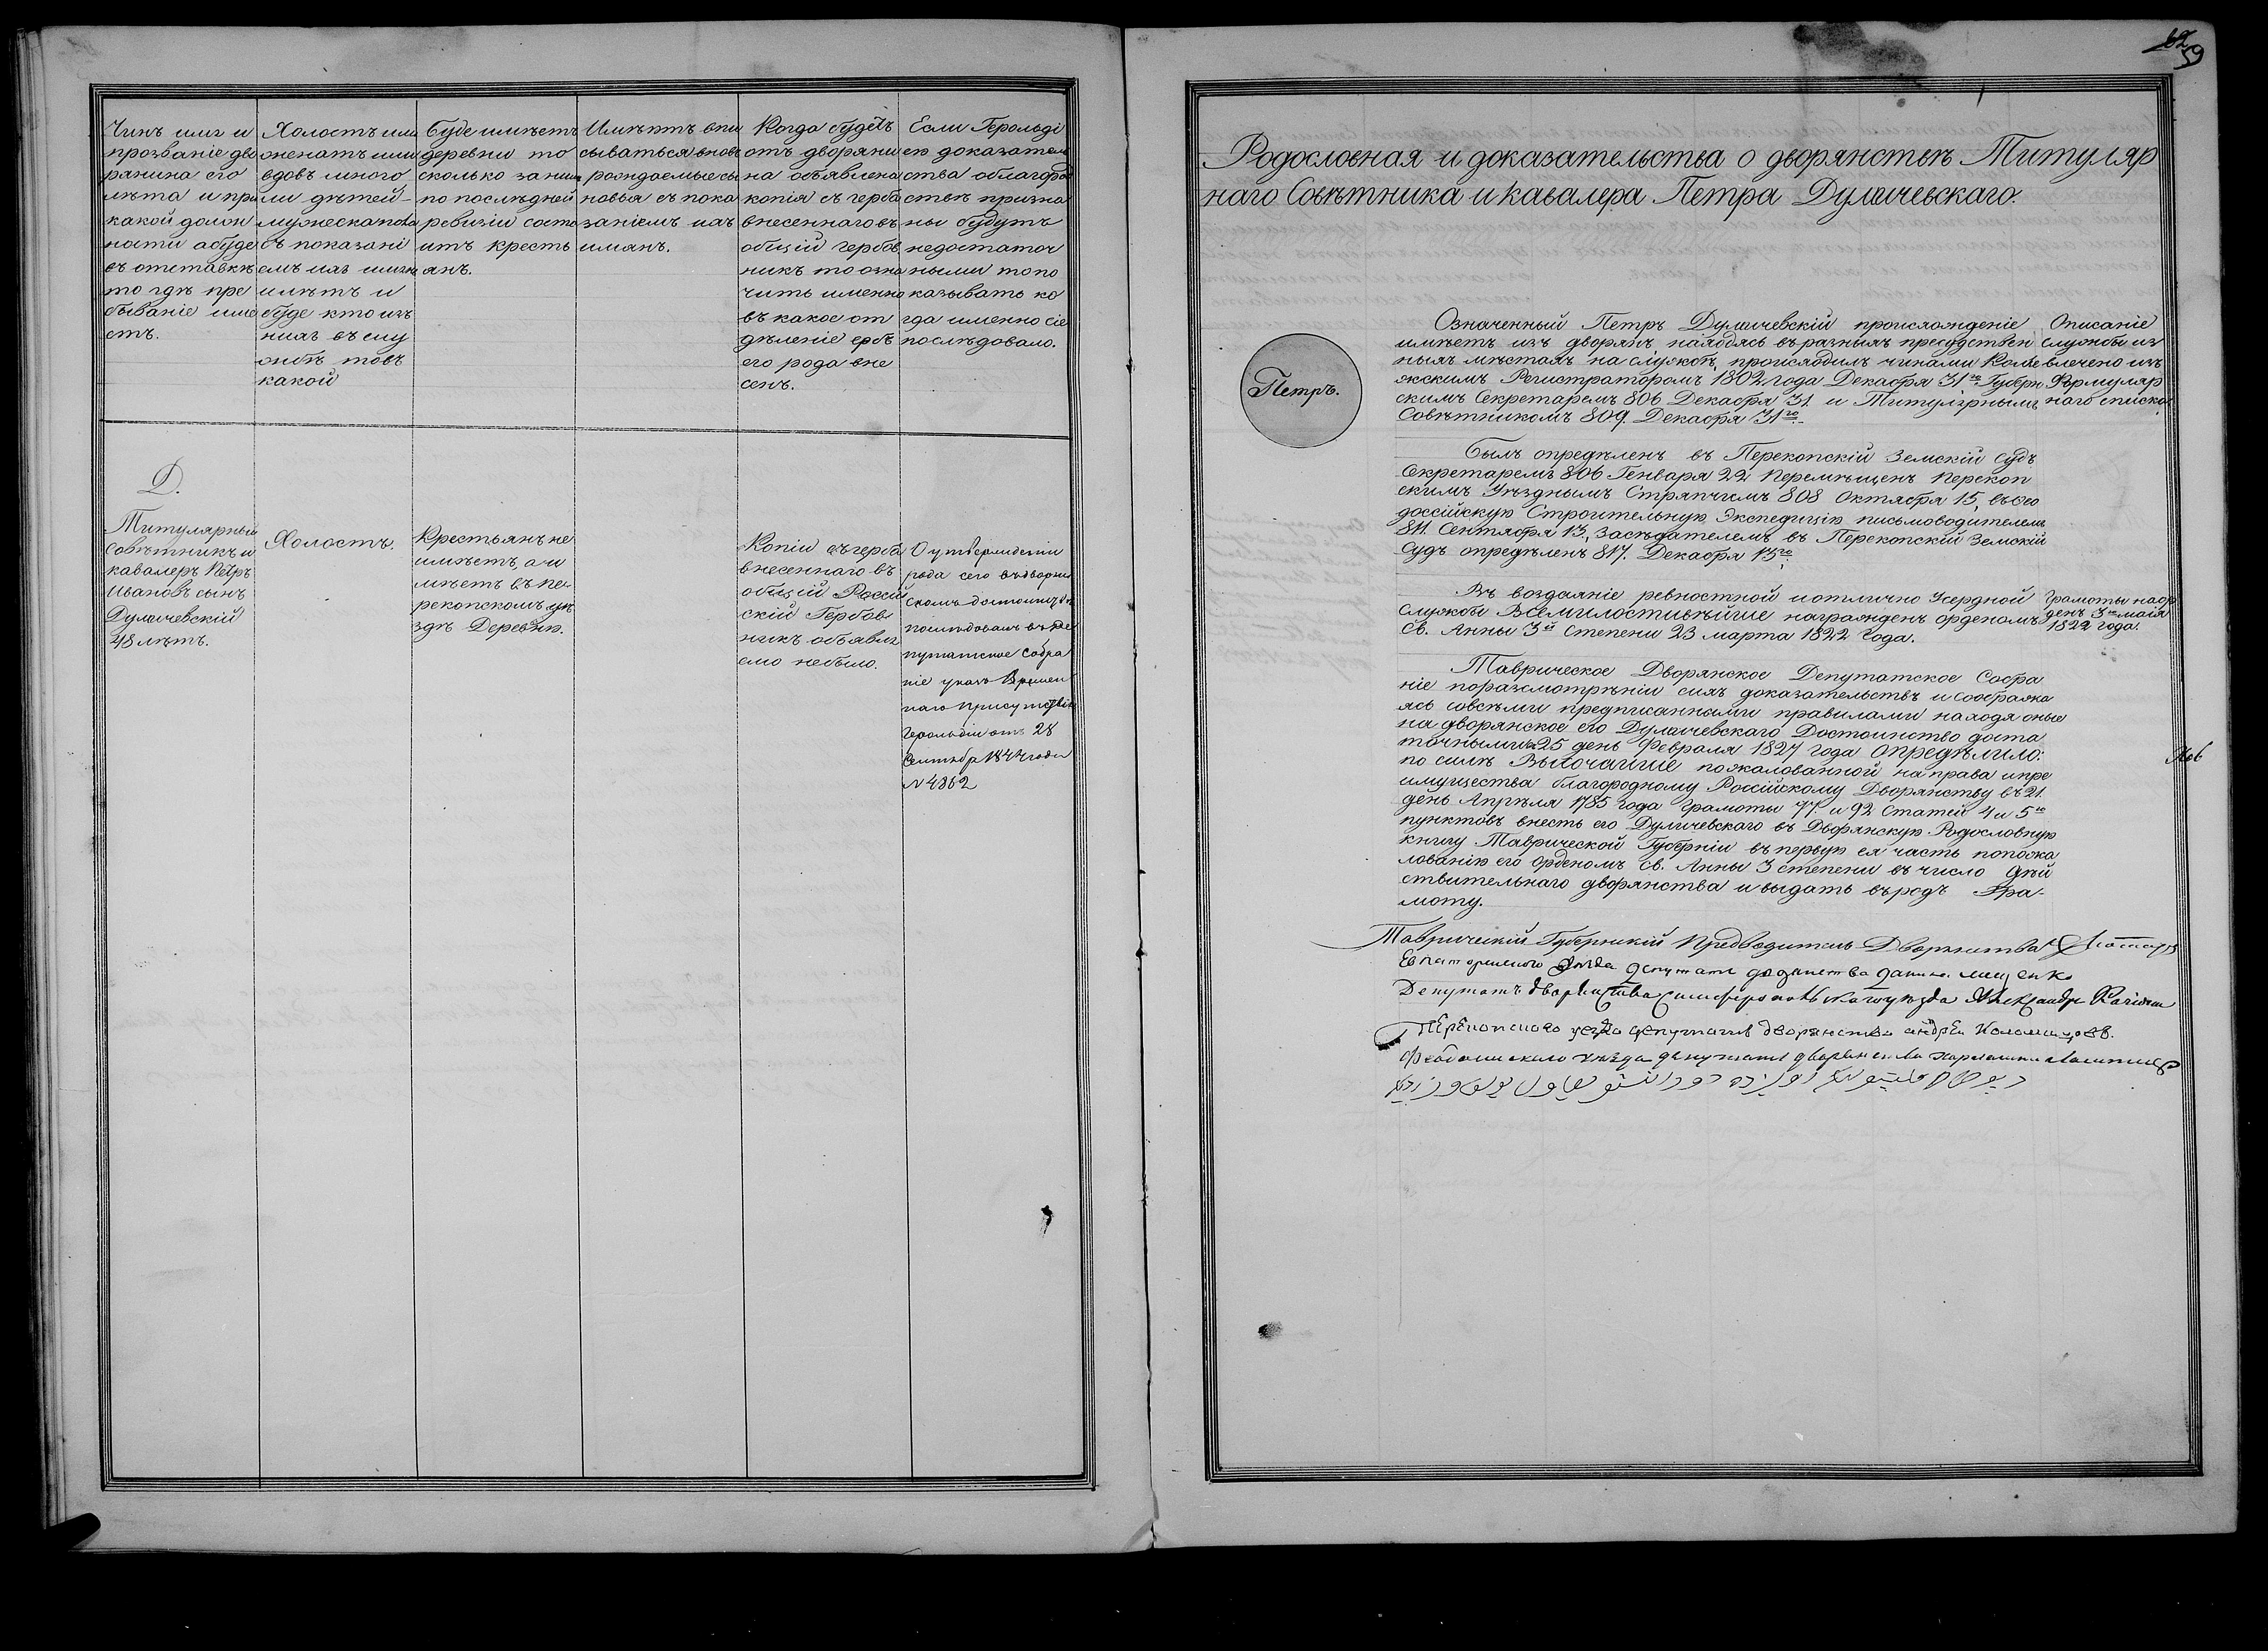 Чинъ имя и
прозваніе дво
рянина его
лѣта и при
какой долж
ности а буде
въ отставкѣ
то гдѣ пре
бываніе име
етъ.
Холостъ или
женатъ или
вдовъ много
ли дѣтей
мужеска пола
съ показані
емъ ихъ имянъ
имѣтъ и
буде кто изъ
нихъ въ слу
жбѣ то въ
какой
Буде имѣетъ
деревни то
сколько за ним
по послѣдней
ревизіи состо
итъ кресть
янъ.
Имѣютъ впи
сываться вновь
рождаемые сы
новья съ пока
заніемъ ихъ
имянъ.
Когда будетъ
отъ дворяни
на объявлена
копія съ герба
внесеннаго въ
общій гербов
никъ то озна
чить именно
въ какое от
дѣленіе гербъ
его рода вне
сенъ.
Если Герольді
ею доказател
ства о благоро
дствѣ призна
ны будутъ
недостаточ
ными то по
казывать ко
гда именно сіе
послѣдовало.
Д.
Титулярный
Совѣтникъ и
кавалеръ Петръ
Ивановъ сынъ
Дуличевскій
48 лѣтъ.
Холостъ.
Крестьянъ не
имѣетъ, а и
мѣетъ въ Пе
рекопскомъ уѣ
здѣ Деревню.
Копіи съ герба
внесеннаго въ
общій Россій
скій Гербов
никъ объявля
емо небыло.
О утвержденіи
рода сего въ дворян
скомъ достоинствѣ
послѣдовалъ въ Де
путатское Собра
ніе указъ Времен
наго Присутствія
Герольдіи отъ 28
Сентября 1844 года
№ 4862
62
59
Родословная и доказательства о дворянствѣ Титуляр
наго Совѣтника и кавалера Петра Дуличевскаго.
Петръ.
Означенный Петръ Дуличевскій происхожденіе
имѣетъ изъ дворянъ, находясь въ разныхъ присудствен
ныхъ мѣстахъ на службѣ, происходилъ чинами Колле
жскимъ Регистраторомъ 1802 года Декабря 31го Губерн
скимъ Секретаремъ 806 Декабря 31. и Титулярнымъ
Совѣтникомъ 809. Декабря 31го
Описаніе
службы из
влечено изъ
Формуляр
наго списка
Былъ опредѣленъ въ Перекопскій Земскій Судъ
Секретаремъ 806 Генваря 22 Перемѣщенъ Перекоп
скимъ Уѣзднымъ Стряпчимъ 808 Октября 15, въ Ѳео
досійскую Строительную Экспедицію письмоводителемъ
811. Сентября 13, Засѣдателемъ въ Перекопскій Земскій
Судъ опредѣленъ 817. Декабря 15го
Въ воздаяніе ревностной и отлично Усердной
Службы Всемилостивѣйше награжденъ орденомъ
Св. Анны 3й Степени 23 марта 1822 Года.
Грамоты на ор
денъ 3го маія
1822 года.
Таврическое Дворянское Депутатское Собра
ніе поразсмотрѣніи сихъ доказательствъ и сообража
ясь совсѣми предписанными правилами находя оные
на дворянское его Дуличевскаго Достоинство доста
точными въ 25 день Февраля 1827 года опредѣлило:
по силѣ Высочайше пожалованной на права и пре
имущества благородному Россійскому Дворянству въ 21.
день Апрѣля 1785 года Грамоты 77 и 92 Статей 4 и 5го
пунктовъ внесть его Дуличевскаго въ Дворянскую Родословную
книгу Таврической Губерніи въ первую ея часть попожа
лованію его орденомъ Св. Анны 3 степени въ число дѣй
ствительнаго дворянства и выдать въ родъ Гра-
моту.
Таврическій Губернскій Предводитель Дворянства
Евпаторійскаго уѣзда депутатъ дворянства
Депутатъ дворянства Симферопольскаго уѣзда Александръ
Перекопскаго уезда депутатъ дворянства андрей
Феодосійскаго уѣзда депутатъ дворянства